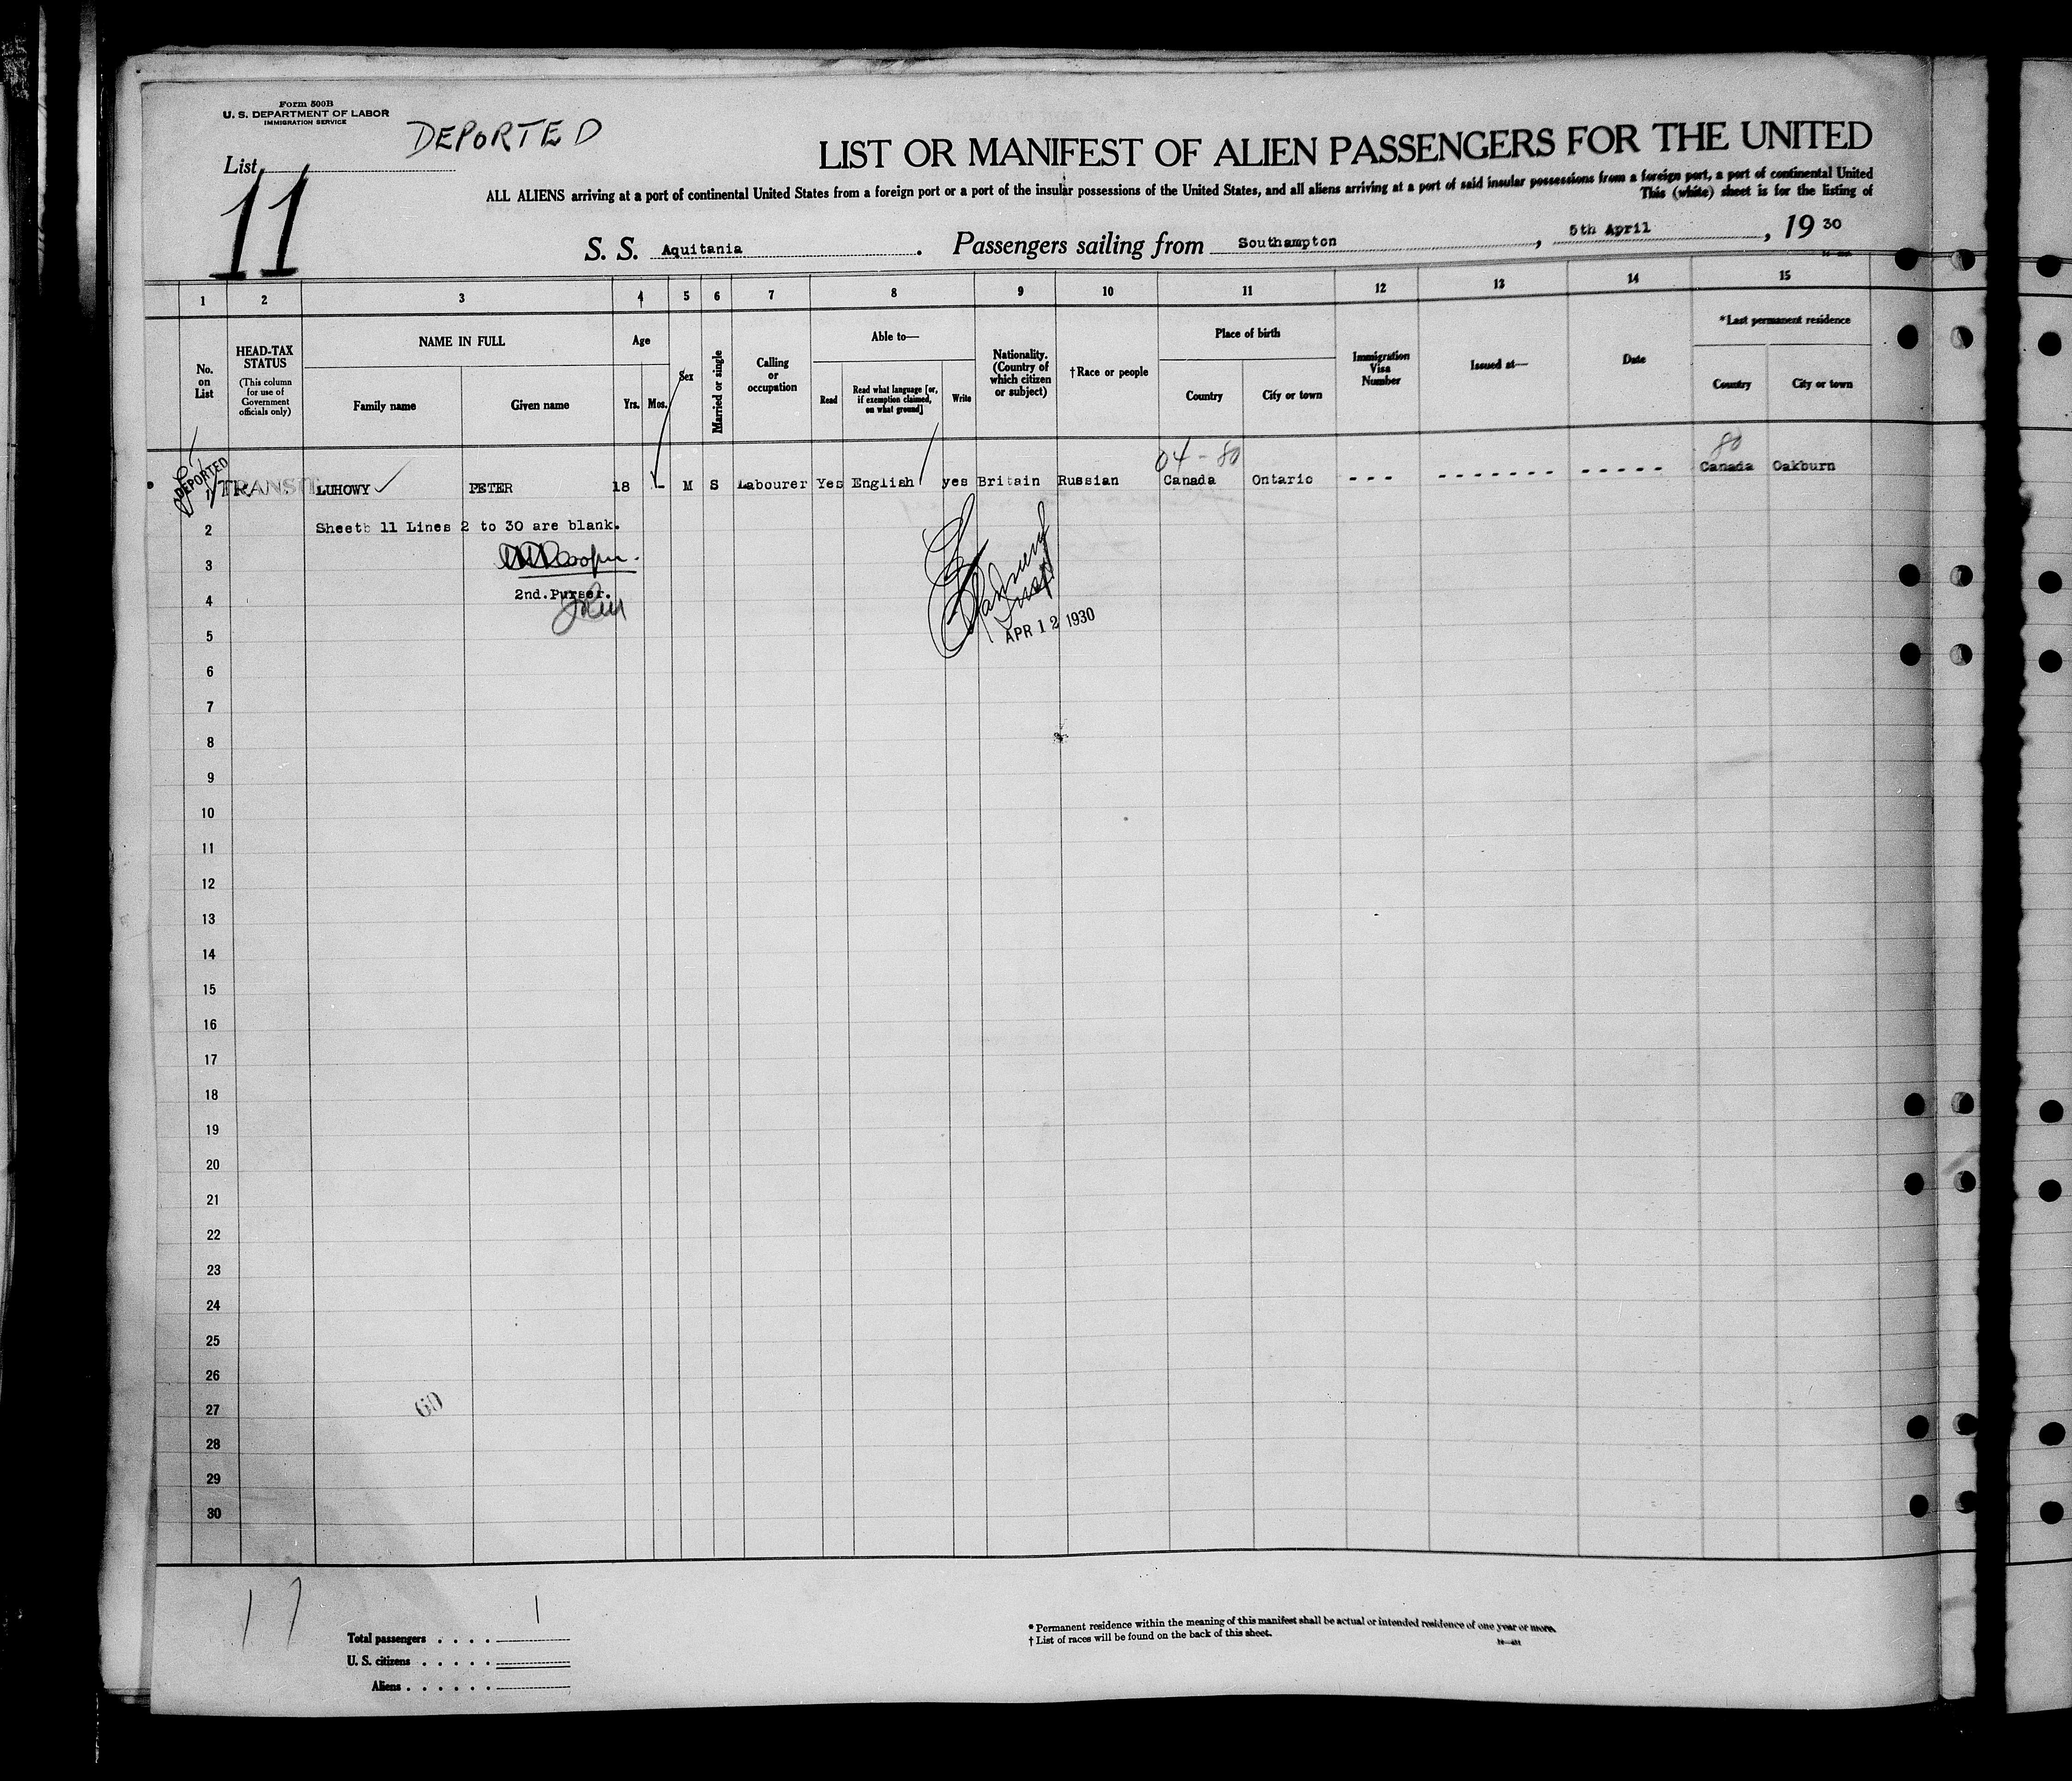 Form 500B
U. S. DEPARTMENT OF LABOR
IMMIGRATION SERVICE
DEPORTED
List
11
LIST OR MANIFEST OF ALIEN PASSENGERS FOR THE UNITED
ALL ALIENS arriving at a port of continental United States from a foreign port or a port of the insular possessions of the United States, and all aliens arriving at a port of said insular possessions from a foreign port, a port of continental United
This (white) sheet is for the listing of
S. S. Aquitania. Passengers sailing from Southampton, 5th April, 19 30
1 2 3 4 5 6 7 8 9 10 11 12 13 14 15
No. on List
HEAD-TAX STATUS
(This column for use of Government officials only)
NAME IN FULL
Family name
Given name
Age
Yrs.
Mos.
Sex
Married or single
Calling or occupation
Able to—
Read
Read what language [or, if exemption claimed, on what ground]
Write
Nationality. (Country of which citizen or subject)
†Race or people
Place of birth
Country
City or town
Immigration Visa Number
Issued at—
Date
*Last permanent residence
Country
City or town
04 - 80
80
DEPORTED
1 TR. TRANSIT LUHOWY PETER 18 M S Labourer Yes English yes Britain Russian Canada Ontario - - - - - - - - - - - - - - - Canada Oakburn
2 Sheet 11 Lines 2 to 30 are blank.
3
2nd. Purser.
4
APR 12 1930
5
6
7
8
9
10
11
12
13
14
15
16
17
18
19
20
21
22
23
24
25
26
60
27
28
29
30
17
1
Total passengers . . . .
U. S. citizens . . . . .
Aliens . . . . . .
* Permanent residence within the meaning of this manifest shall be actual or intended residence of one year or more.
† List of races will be found on the back of this sheet.